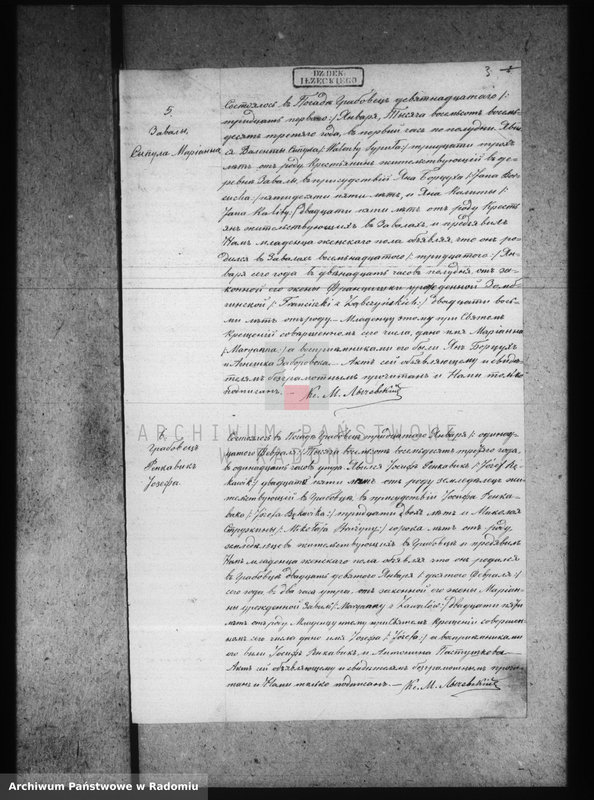 3
DZ.DEK.
IŁŻECKIEGO
5
Завалы,
Сипула Маріанна
Состоялось въ Посадѣ Грабовецъ девятнадцатаго /:
тридцать перваго:/ Января, Тысяча восемьсотъ восемь-
десятъ третяго года, въ первый часъ по полудни. Явил-
ся Валенты Сипула /: Walenty :/ тридцати трехъ
лѣтъ отъ роду Крестьянинъ жительствующій въ де-
ревнѣ Завалы, въ присутствіи Яна Борцуха /: Jana Bor-
cucha :/ пятидесяти пяти лѣтъ, и Яна Калиты /:
Jana Kality :/ двадцати пяти лѣтъ отъ роду Кресть-
янъ жительствующихъ въ Завалахъ, и предъявилъ
Намъ младенца женскаго пола объявляя, что онъ ро-
дился въ Завалахъ восемьнадцатаго /: тридцатаго :/ Ян-
варя сего года въ двѣнадцать часовъ полудня, отъ за-
конной его жены Францишки урожденной
/: Franciszki z :/ двадцати вось-
ми лѣтъ отъ роду. — Младенцу этому при Святомъ
Крещеніи совершенномъ сего числа, дано имя Маріанна
/: Maryanna :/ а воспріемниками его были Янъ Борцухъ
и Агнешка Заборовска. — Актъ сей объявляющему и свидѣ-
телямъ безграмотнымъ прочитанъ и Нами только
подписанъ. — Кс. М.
ARCHIWUM PAŃSTWOWE
W RADOMIU
6
Грабовецъ
Ренкавикъ
Іозефа.
Состоялось въ Посадѣ Грабовецъ тридцатаго Января /: одинад-
цатаго Февраля :/ Тысяча восемьсотъ восемьдесятъ третяго года
въ одинадцать часовъ утра. Явился Іосифъ Ренкавикъ /: Józef Rę-
kawik :/ двадцати пяти лѣтъ отъ роду земледѣлецъ жи-
тельствующій въ Грабовцѣ въ присутствіи Іосифа Ренка-
вика /: Józefa Rękawika :/ тридцати двухъ лѣтъ и Миколая
/: Mikołaja :/ сорока лѣтъ отъ роду,
земледѣльцевъ жительствующихъ въ Грабовцѣ и предъявилъ
Намъ младенца женскаго пола объявляя что онъ родился
въ Грабовцѣ двадцать девятаго Января /: десятаго Февраля :/
сего года въ два часа утра, отъ законной его жены Маріан-
ны урожденной /: Maryanny z :/ двадцати пяти
лѣтъ отъ роду. Младенцу этому при Святомъ Крещеніи совершен-
номъ сего числа дано имя Іозефа /: Józefa :/ а воспріемниками
его были Іосифъ Ренкавикъ и Антонина Пастушкова. —
Актъ сей объявляющему и свидѣтелямъ безграмотнымъ прочи-
танъ и Нами только подписанъ. — Кс. М.
Archiwum Państwowe w Radomiu